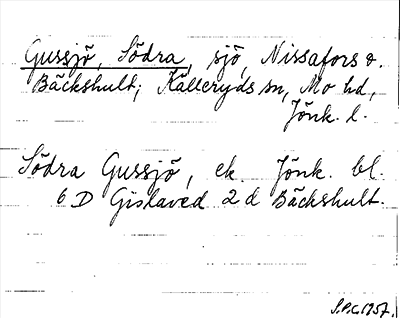 Gussjö, Södra, sjö, Nissafors o.
Bäckshult; Källeryds sn, Mo hd,
Jönk. l.
Södra Gussjö, ek. Jönk. bl.
6 D Gislaved 2 d Bäckshult.
S.P.C. 1957.